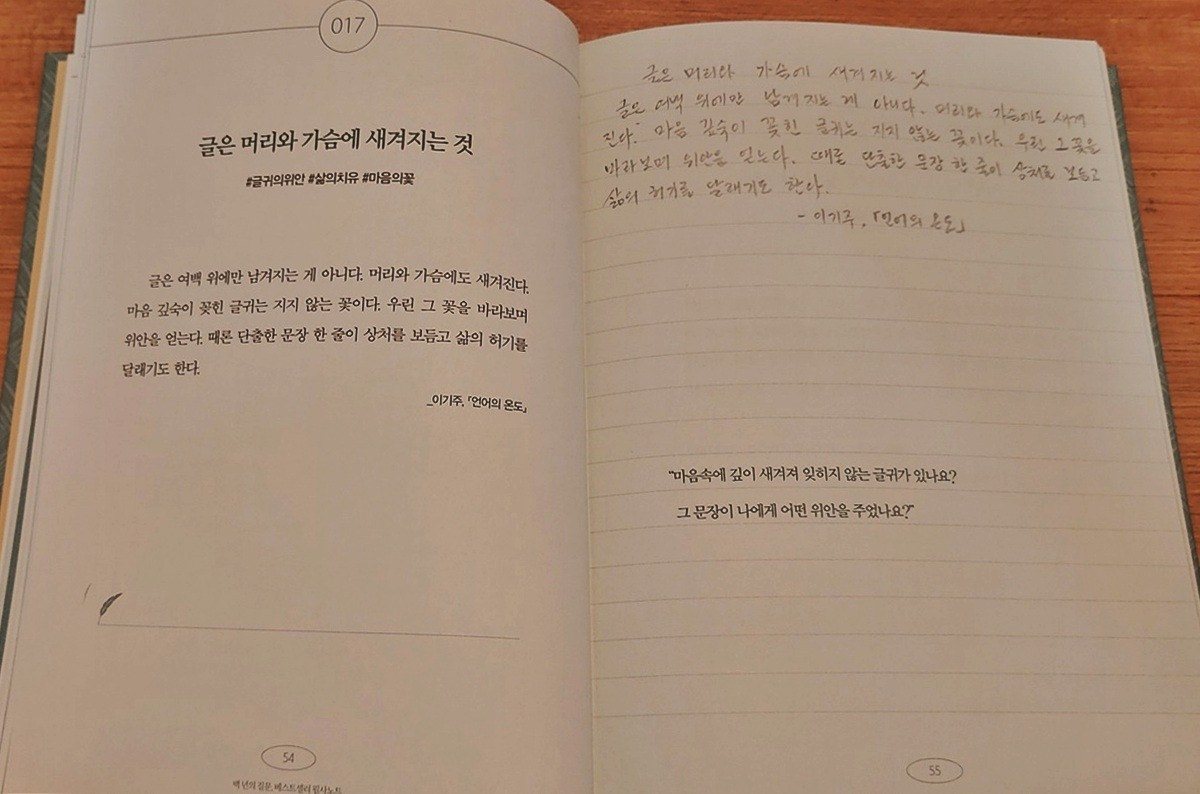 017
글은 머리와 가슴에 새겨지는 것
#글귀의위안 #삶의치유 #마음의꽃
글은 여백 위에만 남겨지는 게 아니다. 머리와 가슴에도 새겨진다.
마음 깊숙이 꽂힌 글귀는 지지 않는 꽃이다. 우린 그 꽃을 바라보며
위안을 얻는다. 때론 단출한 문장 한 줄이 상처를 보듬고 삶의 허기를
달래기도 한다.
_이기주, 「언어의 온도」
54
백 년의 질문, 베스트셀러 필사노트
글은 머리와 가슴에 새겨지는 것
글은 여백 위에만 남겨지는 게 아니다. 머리와 가슴에도 새겨
진다. 마음 깊숙이 꽂힌 글귀는 지지 않는 꽃이다. 우린 그 꽃을
바라보며 위안을 얻는다. 때론 단출한 문장 한 줄이 상처를 보듬고
삶의 허기를 달래기도 한다.
- 이기주, 「언어의 온도」
"마음속에 깊이 새겨져 잊히지 않는 글귀가 있나요?
그 문장이 나에게 어떤 위안을 주었나요?"
55